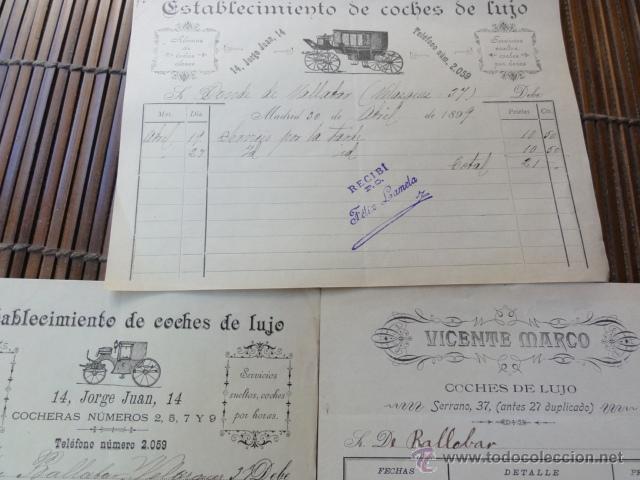 Establecimiento de coches de lujo
Abonos
de
todas
clases
14, Jorge Juan, 14
Teléfono núm. 2.059
Servicios
sueltos,
coches
por horas
Sr. Conde de Ballobar (Velazquez 27) Debe
Madrid 30 de Abril de 1899
Mes. Día. Pesetas Cs.
Abril 19 Servicio por la tarde 10 50
" 23 id id 10 50
Total 21 "
RECIBÍ
P. O.
Félix Lamela
ablecimiento de coches de lujo
14, Jorge Juan, 14
COCHERAS NÚMEROS 2, 5, 7 Y 9
Teléfono número 2.059
Servicios
sueltos, coches
por horas.
Ballobar Velazquez 27 Debe
VICENTE MARCO
COCHES DE LUJO
Serrano, 37, (antes 27 duplicado)
Sr. De Ballobar
FECHAS DETALLE P
todocoleccion.net